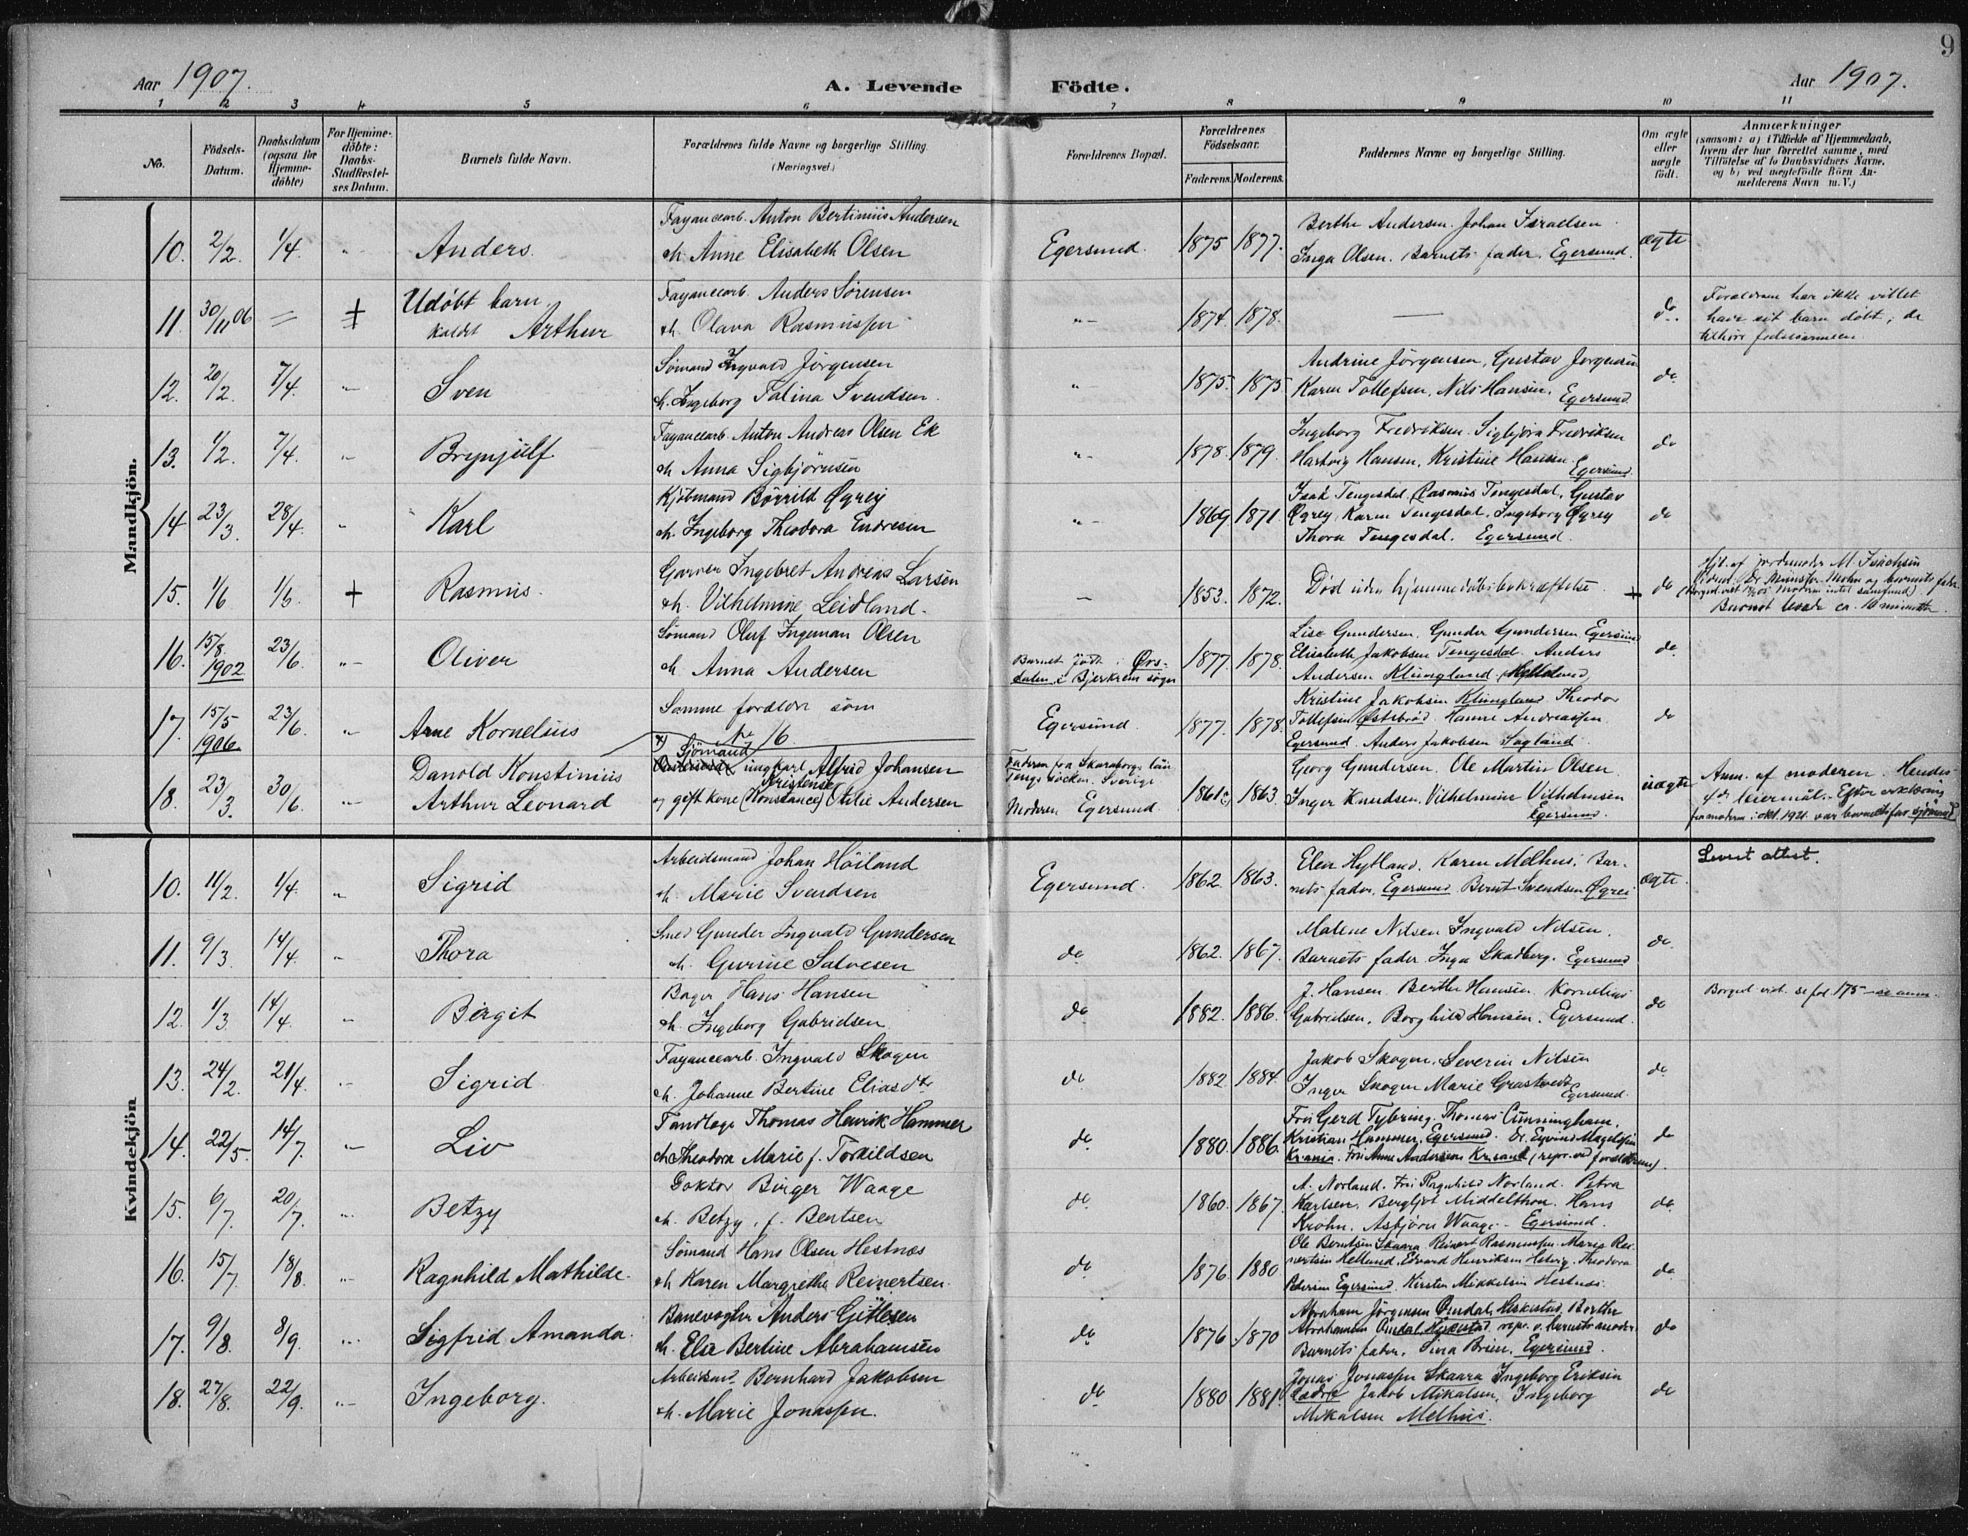 9
Aar 1907.
A. Levende Födte.
Aar 1907.
1 2 3 4 5 6 7 8 9 10 11
No.
Födsels-Datum.
Daabsdatum (ogsaa for Hjemmedöbte)
For Hjemmedöbte: Daabs-Stadfestelses Datum.
Barnets fulde Navn.
Forældrenes fulde Navne og borgerlige Stilling. (Næringsvei.)
Forældrenes Bopæl.
Forældrenes Födselsaar.
Faderens. Moderens.
Faddernes Navne og borgerlige Stilling.
Om ægte eller uægte födt.
Anmærkninger
(saasom: a) i Tilfælde af Hjemmedaab, hvem der har forrettet samme, med Tilföielse af to Daabsvidners Navne, og b) ved uægtefödte Börn Anmelderens Navn m. V.)
Mandkjön.
10. 2/2. 1/4. " Anders.
Fayancearb. Anton Bertinius Andersen
h. Anne Elisabeth Olsen
Egersund. 1875 1877.
Berthe Andersen. Johan Israelsen
Inga Olsen. Barnets fader. Egersund.
ægte
11 30/11 06 = + Udøbt barn
kaldt Arthur
Fayancearb. Anders Sørensen
h. Olava Rasmussen
"- 1874. 1878. — do.
Forældrene har ikke villet
have sit barn døbt; de
tilhøre frelsesarmeen.
12. 20/2 7/4. " Sven
Sømand Ingvald Jörgensen
h. Ingeborg Talina Svendsen.
"- 1875. 1875
Andrine Jörgensen, Gustav Jorgensen
Karen Tollefsen, Nils Hansen. Egersund.
do.
13. 1/2. 7/4. " Brynjulf
Fayancearb. Anton Andreas Olsen Ek
h. Anna Sigbjörnsen
"- 1878. 1879.
Ingeborg Fredriksen. Sigbjörn Fredriksen
Hartvig Hansen, Kristine Hansen.
Egersund.
do
14 23/3. 28/4. " Karl
Kjöbmand Börrild Øgrey
h. Ingeborg Theodora Endresen
"- 1869 1871
Isak Tengesdal, Rasmus Tengesdal, Gustav
Øgrey, Karen Tengesdal. Ingeborg Øgrey
Thora Tengesdal. Egersund.
do
15. 1/6 1/6. + Rasmus.
Garver Ingebret Andreas Larsen
h. Vilhelmine Leidland.
— 1853. 1872.
Død uden hjemmedåbsbekræftelse. + do
Barnet levede ca. 10 minutter.
16. 15/8. 1902 23/6. " Oliver
Sømand Oluf Ingeman Olsen
h. Anna Andersen
Barnet født i Ørsdalen i Bjerkrem sogn
1877. 1878.
Lise Gundersen, Gunder Gundersen Egersund
Elisabeth Jakobsen Tengesdal. Anders
Andersen Klungland
do.
17. 15/5 1906. 23/6. " Arne Kornelius
Samme foreldre som
No 16.
Egersund. 1877. 1878.
Kristine Jakobsen Klungland Theodor
Tollefsen Østebrød. Hanne Andreassen
Egersund. Anders Jakobsen Sagland.
do
18. 23/3. 30/6. " Danold Konstinius
Arthur Leonard
Sjömand ungkarl Alfred Johansen
Kristense
og gift kone (Konstance) Otilie Andersen
Faderen fra Skaraborgs län
Sverige
Moderen Egersund.
1861 1863
Georg Gundersen. Ole Martin Olsen.
Inger Knudsen. Vilhelmine Vilhelmsen
Egersund.
uægte
Anm. af moderen. Hendes
leiermål. Efter erklæring
fra moderen i okt. 1921 var barnets far sjömand
Kvindekjön
10. 11/2. 1/4. " Sigrid
Arbeidsmand Johan Höiland
h. Marie Svendsen
Egersund. 1862. 1863.
Elen Hytland. Karen Melhus. Barnets fader. Egersund. Bernt Svendsen Øgrei
ægte.
Levert attest.
11. 9/3. 14/4. " Thora
Smed Gunder Ingvald Gundersen
h. Gurine Salvesen
do 1862. 1867.
Malene Nilsen Ingvald Nilsen.
Barnets fader Inga Skadberg. Egersund
do.
12. 1/3. 14/4. " Birgit
Bager Hans Hansen
h. Ingeborg Gabrielsen
do 1882. 1886.
J. Hansen. Berthe Hansen Kornelius
Gabrielsen, Borghild Hansen. Egersund.
do
13. 24/2. 21/4. " Sigrid
Fayancearb. Ingvald Skogen
h. Johanne Bertine Eliasdtr
do 1882 1884.
Jakob Skogen, Severin Nilsen
Inger Skogen Marie Grastveit
Egersund.
do
14. 22/5. 14/7. " Liv
Tandlæge Thomas Henrik Hammer
h. Theodora Marie f. Torkildsen
do 1880 1886.
Frk Gerd Tybring. Thomas Cunningham.
Kristian Hammer, Egersund.
do
15. 6/7. 20/7. " Betzy
Doktor Birger Waage
h. Betzy, f. Bentsen
do. 1860. 1867.
A. Norland. Fru Ragnhild Norland. Petra
Karlsen. Bergljot Middelthon. Hans
Krohn. Asbjörn Waage. Egersund.
do.
16. 15/7. 18/8. " Ragnhild Mathilde.
Sømand Hans Olsen Hestnes
h. Karen Margrethe Reinertsen.
do 1876. 1880
Ole Berntsen Skaara Reinert Rasmussen. Maria Reinertsen Edvard Henriksen Theodora
Pedersen Egersund. Kirsten Mikkelsen Hestnes.
do
17. 9/8. 8/9. " Sigfrid Amanda.
Banevogter Anders Gitlesen
h. Else Bertine Abrahamsen
do 1876 1870
Abraham Jörgensen Omdal, Heskestad, Berthe
Abrahamsen Omdal, Heskestad repr. v. barnets moder
Barnets fader, Sina Egersund.
do
18. 27/8. 22/9. " Ingeborg.
Arbeidsmd. Bernhard Jakobsen
h. Marie Jonassen.
do 1880 1881.
Jonas Jonassen Skaara Ingeborg Eriksen
Jakob Mikalsen, Ingeborg
Mikalsen Melhus.
do